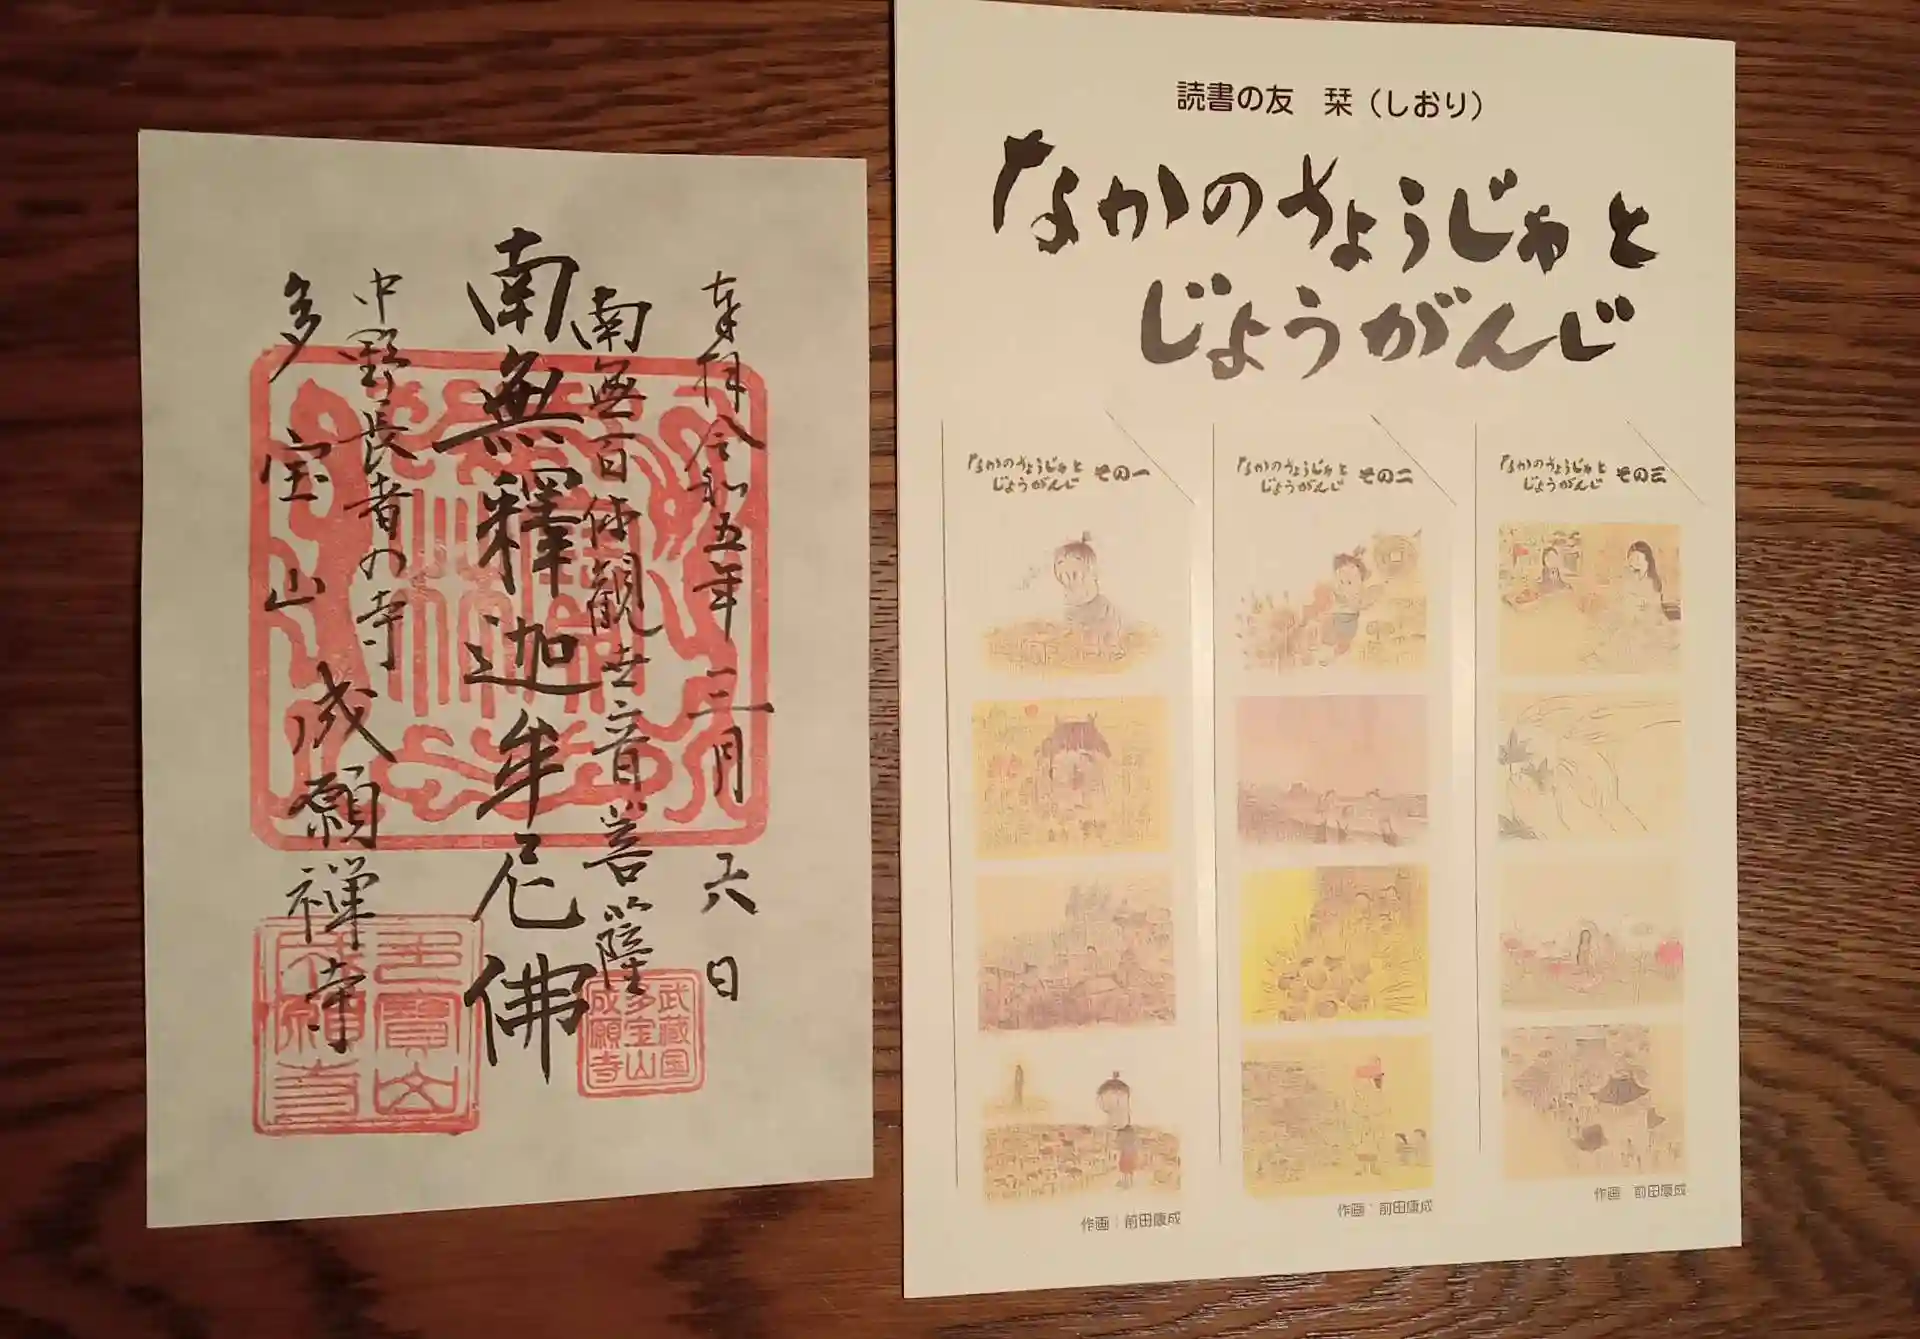 奉拝 令和五年三月六日
南無百体観世音菩薩
南無釋迦牟尼佛
中野長者の寺
多宝山 成願禅寺
武蔵国
多宝山
成願寺
多寶山
成願寺
読書の友 栞(しおり)
なかのちょうじゃと
じょうがんじ
なかのちょうじゃと
じょうがんじ その一
作画:前田康成
なかのちょうじゃと
じょうがんじ その二
作画:前田康成
なかのちょうじゃと
じょうがんじ その三
作画 前田康成